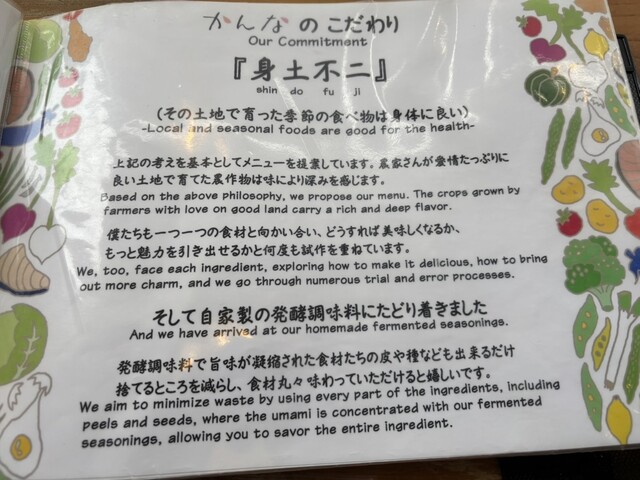 かんなのこだわり
Our Commitment
『身土不二』
shin do fu ji
(その土地で育った季節の食べ物は身体に良い)
-Local and seasonal foods are good for the health-
上記の考えを基本としてメニューを提案しています。農家さんが愛情たっぷりに
良い土地で育てた農作物は味により深みを感じます。
Based on the above philosophy, we propose our menu. The crops grown by
farmers with love on good land carry a rich and deep flavor.
僕たちも一つ一つの食材と向かい合い、どうすれば美味しくなるか、
もっと魅力を引き出せるかと何度も試作を重ねています。
We, too, face each ingredient, exploring how to make it delicious, how to bring
out more charm, and we go through numerous trial and error processes.
そして自家製の発酵調味料にたどり着きました
And we have arrived at our homemade fermented seasonings.
発酵調味料で旨味が凝縮された食材たちの皮や種なども出来るだけ
捨てるところを減らし、食材丸々味わっていただけると嬉しいです。
We aim to minimize waste by using every part of the ingredients, including
peels and seeds, where the umami is concentrated with our fermented
seasonings, allowing you to savor the entire ingredient.